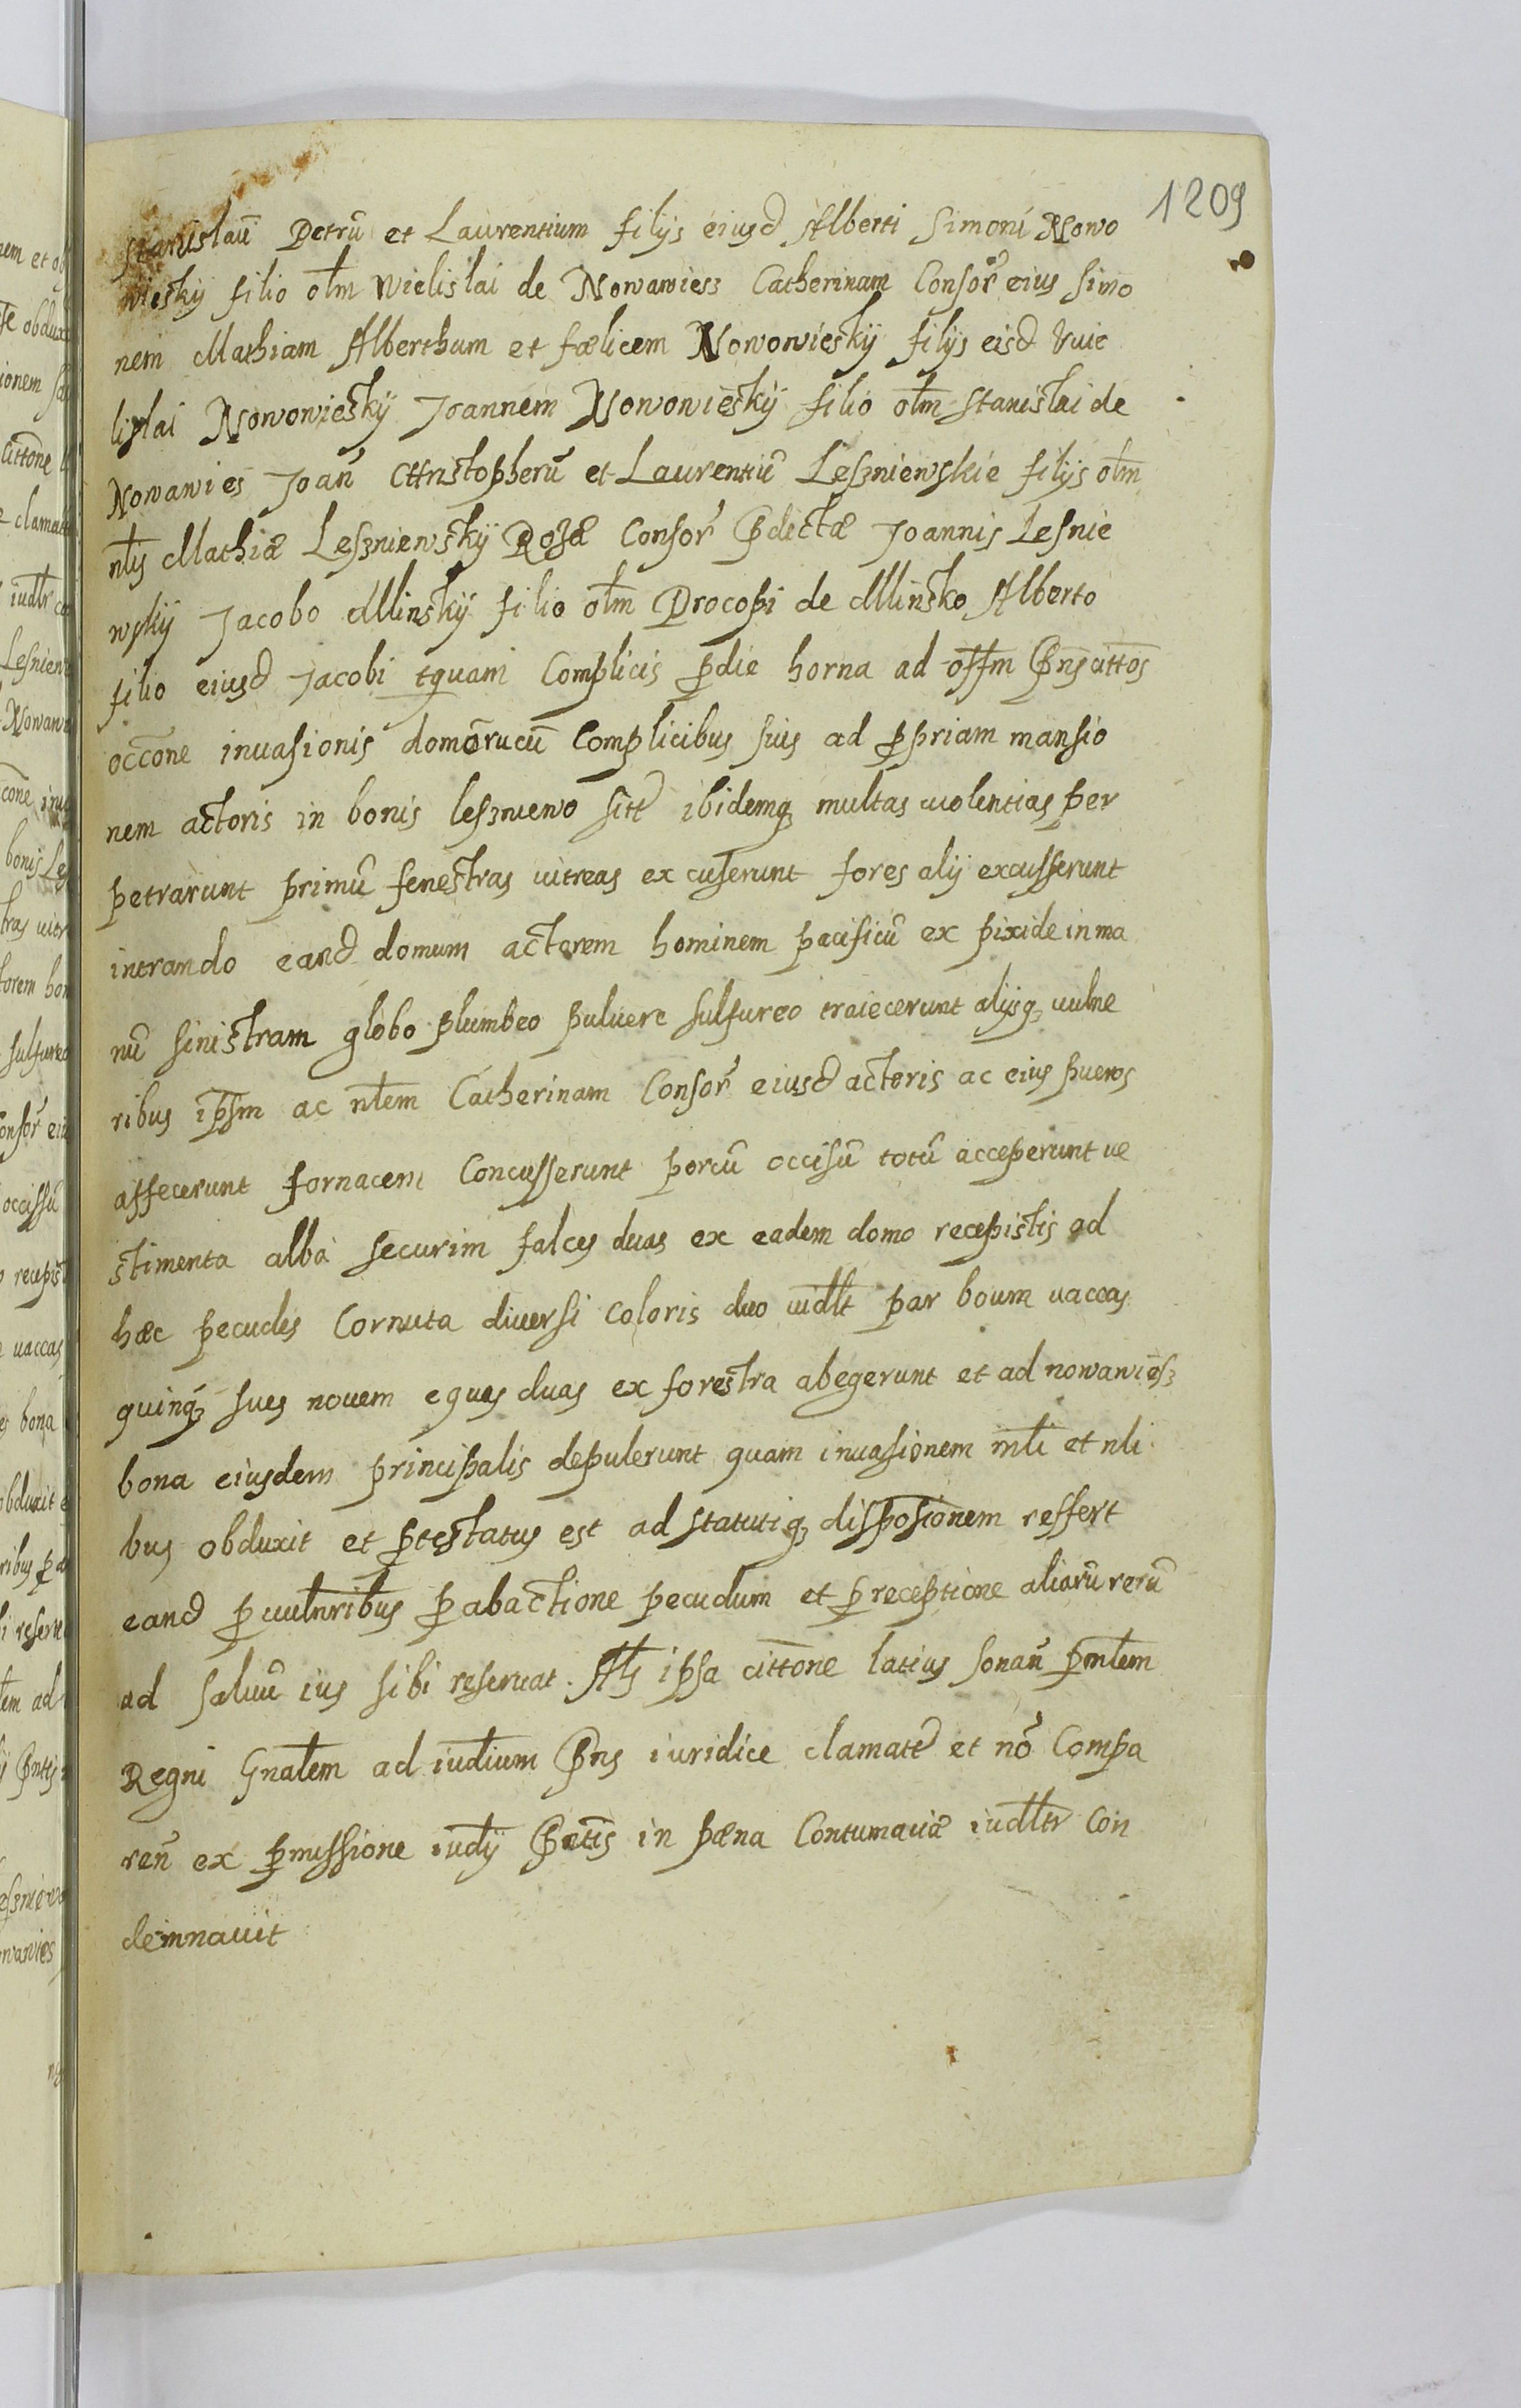 1209
Stanislaũ Petrũ et Laurentium filijs eiusd Alberti Simoni Nowo
wiesky filio olm Wielislai de Nowawiesz Catherinam Consor eius Simo
nem Mathiam Alberthum et fælicem Nowowiesky filijs eisd Vuie
lislai Nowowiesky Joannem Nowowiesky filio olm Stanislai de
Nowawies Joañ Christopherũ et Laurentiũ Leszniewskie filijs olm
nlis Mathiæ Leszniewsky Rosæ Consor pdictæ Joannis Lesnie
wsky Jacobo Mlinsky filio olm Procopi de Mlinsko Alberto
filio eiusd Jacobi tquam Complicis pdie horna ad offm pns cittos
occone inuasionis domorucũ Complicibus suis ad ppriam mansio
nem actoris in bonis leszniewo sitt ibidemq multas uiolentias per
petrarunt primũ fenestras uitreas ex cuserunt fores alij excusserunt
intrando eand domum actorem hominem pacificũ ex pixide in ma
nũ sinistram globo plumbeo puluere sulfureo traiecerunt alijsq uulne
ribus ipsm ac nlem Catherinam Consor eiusd actoris ac eius pueros
affecerunt fornacem Concusserunt porcũ occisũ totũ acceperunt ue
stimenta alba securim falces duas ex eadem domo recepistis ad
hæc pecudes Cornuta diuersi Coloris duo uidlt par boum uaccas
quinq sues nouem equas duas ex forestra abegerunt et ad nowawiesz
bona eiusdem principalis depulerunt quam inuasionem mli et nli
bus obduxit et ptestatus est ad statutiq disposionem reffert
eand p uulnribus p abactione pecudum et p receptione aliarũ rerũ
ad saluũ ius sibi reseruat. Als ipsa cittone latius sonañ pmlem
Regni Gnalem ad iudium pns iuridice clamatt et nõ Compa
reñ ex pmissione iudij pntis in pæna Contumaciæ iudltr Con
demnauit